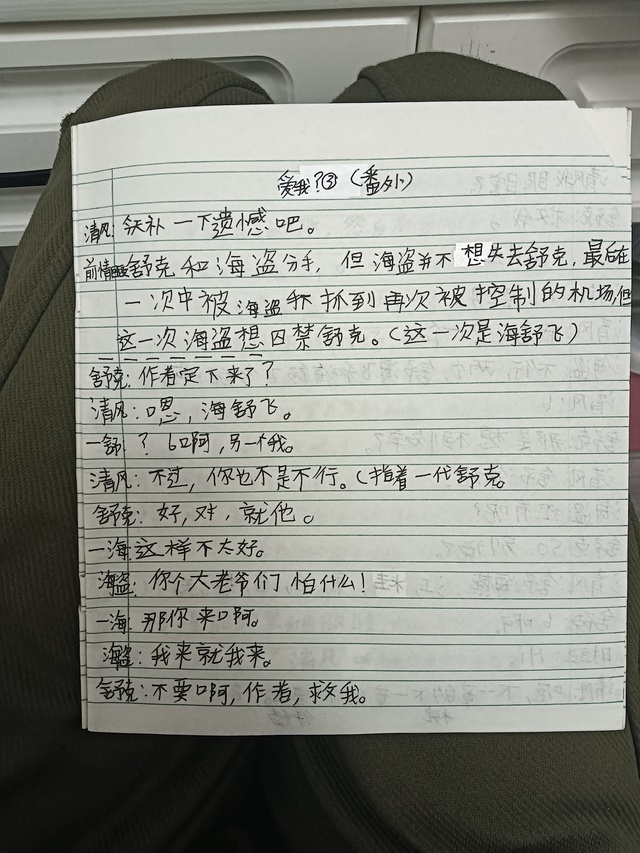 爱我?③(番外)
清风:弥补一下遗憾吧。
前情:舒克和海盗分手,但海盗并不想失去舒克,最后在
一次中被海盗抓到再次被控制的机场,但
这一次海盗想囚禁舒克。(这一次是海舒飞)
舒克:作者定下来了?
清风:嗯,海舒飞。
一舒:?6啊,另一个我。
清风:不过,你也不是不行。(指着一代舒克
舒克:好,对,就他。
一海:这样不太好。
海盗:你个大老爷们怕什么!
一海:那你来啊。
海盗:我来就我来。
舒克:不要啊,作者,救我。